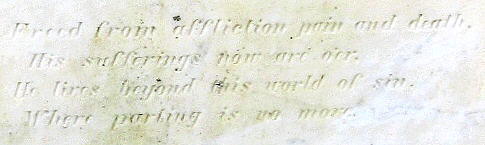 Freed from affliction pain and death,
His sufferings now are o'er.
He lives beyond this world of sin,
Where parting is no more.